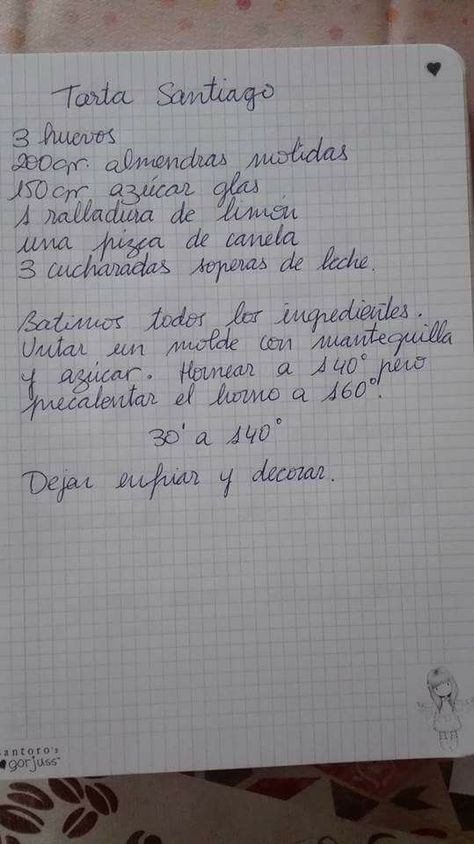 Tarta Santiago
3 huevos
200gr. almendras molidas
150gr azúcar glas
1 ralladura de limón
una pizca de canela
3 cucharadas soperas de leche.
Batimos todos los ingredientes.
Untar un molde con mantequilla
y azúcar. Hornear a 140° pero
precalentar el horno a 160°.
30' a 140°
Dejar enfriar y decorar.
santoro's
gorjuss™